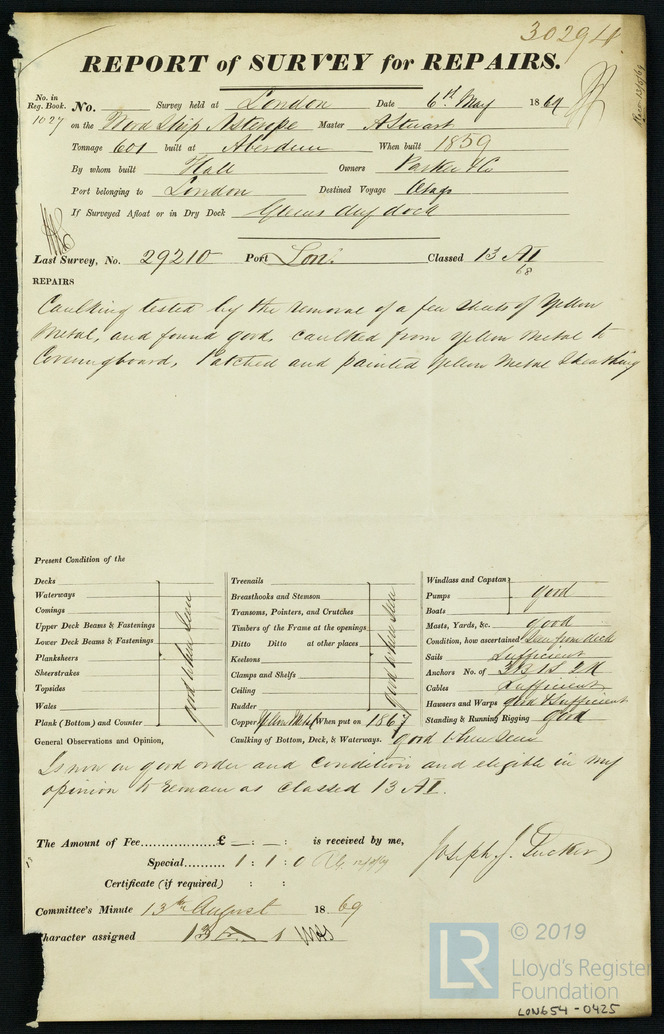 30294
REPORT of SURVEY for REPAIRS.
No. in Reg. Book. No. Survey held at London Date 6th May 1869
1027 on the Wood Ship Asterope Master A Stuart
Tonnage 601 built at Aberdeen When built 1859
By whom built Hall Owners Parker & Co
Port belonging to London Destined Voyage Otago
If Surveyed Afloat or in Dry Dock dry dock
Last Survey, No. 29210 Port Lon. Classed 13 A1
68
REPAIRS
Caulking tested by the removal of a few sheets of Yellow
Metal, and found good, caulked from Yellow Metal to
Coveringboard, Patched and painted Yellow Metal Sheathing
Present Condition of the
Decks
Waterways
Comings
Upper Deck Beams & Fastenings
Lower Deck Beams & Fastenings
Planksheers
Sheerstrakes
Topsides
Wales
Plank (Bottom) and Counter
good when seen
Treenails
Breasthooks and Stemson
Transoms, Pointers, and Crutches
Timbers of the Frame at the openings
Ditto Ditto at other places
Keelsons
Clamps and Shelfs
Ceiling
Rudder
good when seen
Copper Yellow Metal When put on 1867
Caulking of Bottom, Deck, & Waterways. good when seen
Windlass and Capstan
Pumps good
Boats
Masts, Yards, &c. good
Condition, how ascertained Seen from deck
Sails Sufficient
Anchors No. of 3 B 1 S 2 K
Cables Sufficient
Hausers and Warps good & Sufficient
Standing & Running Rigging good
General Observations and Opinion,
Is now in good order and condition and eligible in my
opinion to remain as classed 13 A1.
The Amount of Fee £ — : — : is received by me,
Special 1 : 1 : 0
Joseph J. Tucker
Certificate (if required) : :
Committee's Minute 13th August 1869
Character assigned 13 A 1
© 2019
LR
Lloyd's Register
Foundation
LON654-0425